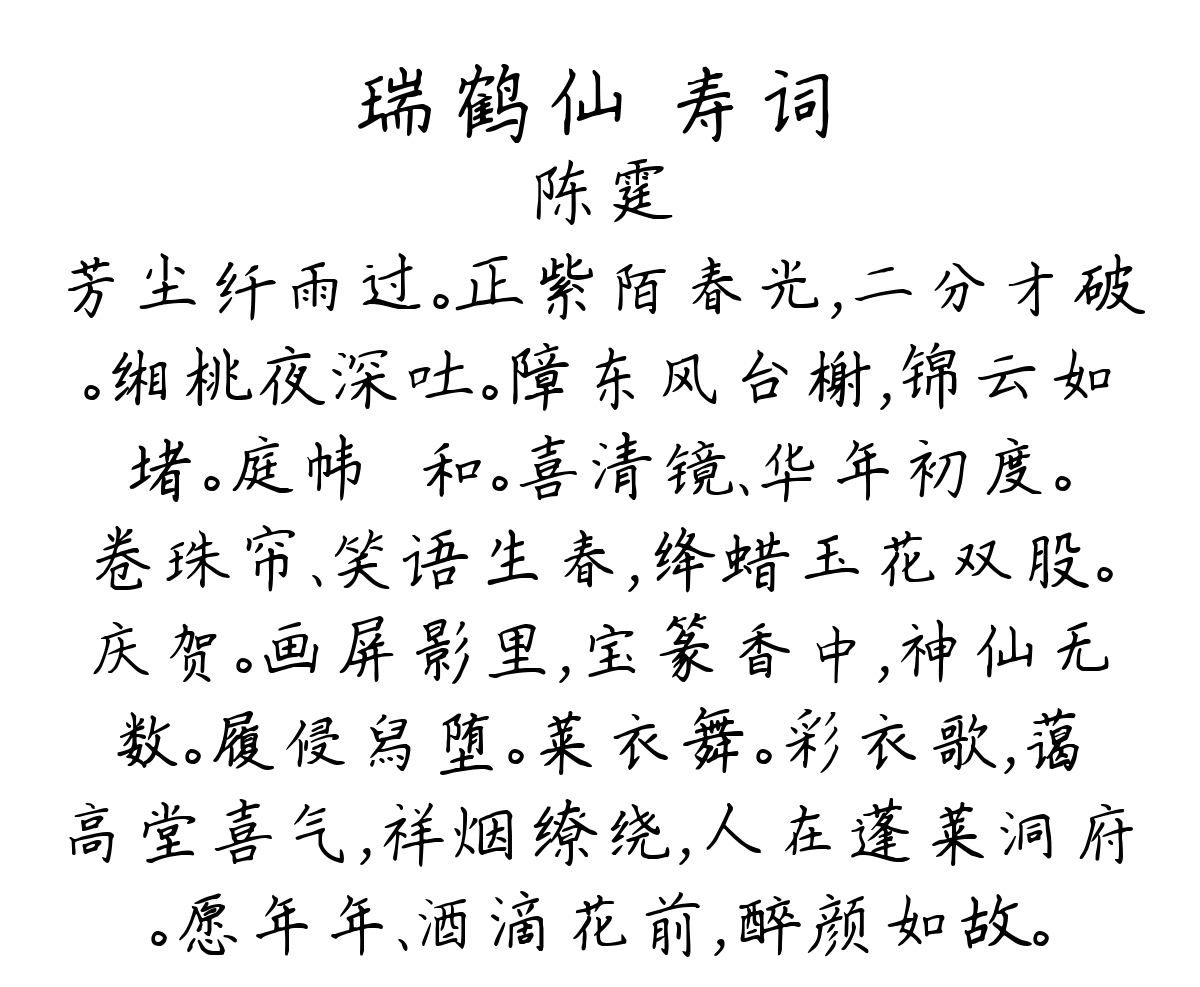 瑞鹤仙 寿词
陈霆
芳尘纤雨过。正紫陌春光,二分才破
。缃桃夜深吐。障东风台榭,锦云如
堵。庭帏 和。喜清镜、华年初度。
卷珠帘、笑语生春,绛蜡玉花双股。
庆贺。画屏影里,宝篆香中,神仙无
数。履侵舄堕。莱衣舞。彩衣歌,蔼
高堂喜气,祥烟缭绕,人在蓬莱洞府
。愿年年、酒滴花前,醉颜如故。